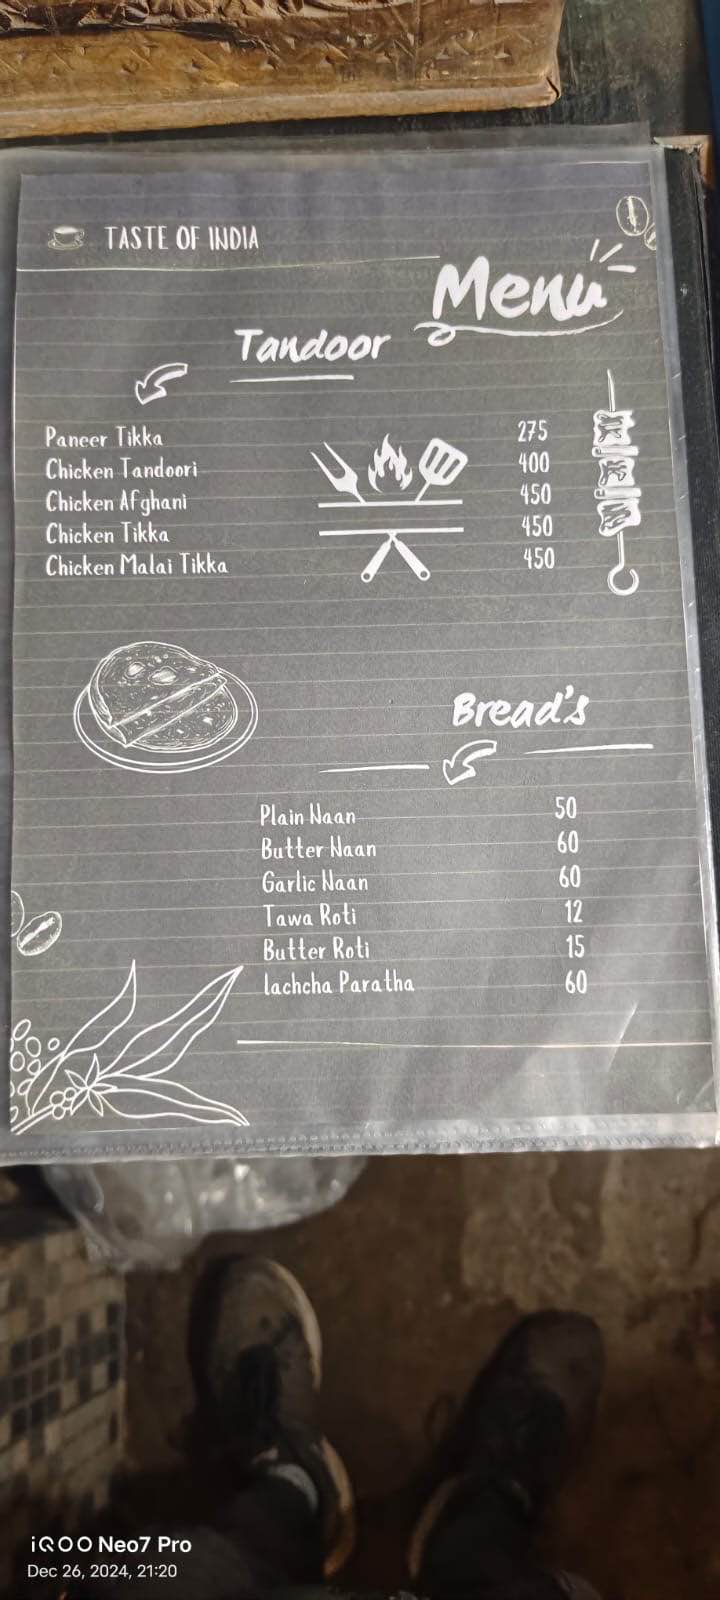 TASTE OF INDIA
Menu
Tandoor
Paneer Tikka 275
Chicken Tandoori 400
Chicken Afghani 450
Chicken Tikka 450
Chicken Malai Tikka 450
Bread's
Plain Naan 50
Butter Naan 60
Garlic Naan 60
Tawa Roti 12
Butter Roti 15
lachcha Paratha 60
iQOO Neo7 Pro
Dec 26, 2024, 21:20